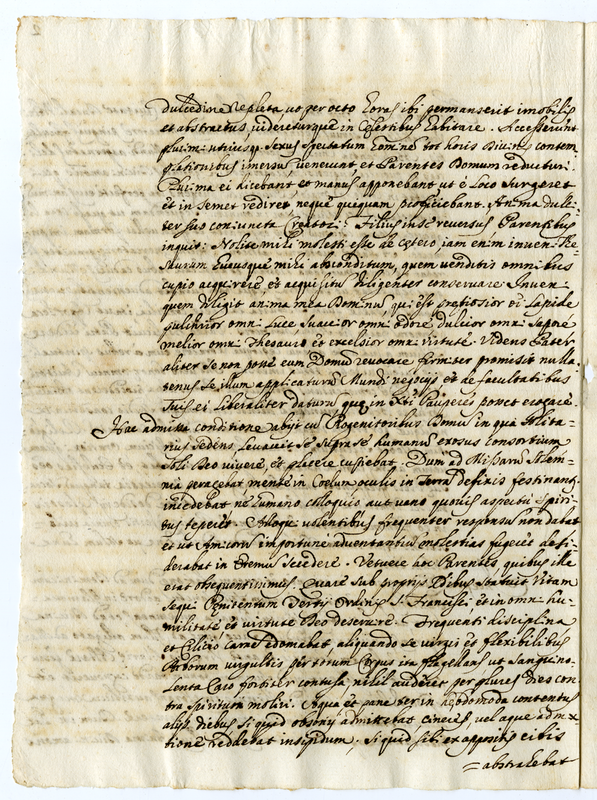 2
dulcedine repleta, uo per octo horas ibi permanserit imobilis
et abstractus, videreturque in Celestibus habitare. Accesserunt
plurimi utriusq; sexus spectatum homine tot horis Divinis contem
plationibus imersu venerunt et Parentes Domum reducturi.
Plurima ei dicebant et manus apponebant ut è Loco surgeret
et in semet rediret neque quiquam proficiebant. Anima dulci-
ter suo coniuncta Creatori. Filius in se reversus Parentibus
inquit: Nolite mihi molesti esse de cetero iam enim inveni The-
saurum hucusque mihi absconditum, quem venditis omnibus
cupio acquirere et acquisitu diligenter conservare Inveni
quem diligit anima mea Dominus qui est pretiosior omi Lapide
pulchrior omni Luce suavior omni odore dulcior omni Sapore
melior omni Thesauro et excelsior omni virtute. Videns Pater
aliter se non posse eum Domu revocare firmiter promisit nulla-
tenus se illum applicaturu Mundi negocijs et de facultatibus
suis ei liberaliter daturu que in Xti Pauperes posset erogare
Hac admissa conditione abijt cu Progenitoribus Domu in qua solita-
rius sedens, levavit se supra se humanu exosus Consortium
soli Deo vivere, et placere cupiebat. Dum ad Missaru solem-
nia pergebat mente in Coelum oculis in terra defixis festinant.
incedebat ne humano colloquio aut vano quovis aspectu spiri-
tus tepeset. Alloqui volentibus frequenter responsu non dabat
et ut Amicoru importune adventantiu molestias fugeret desi-
derabat in Eremu secedere. Vetuere hoc Parentes, quibus illa
etat obsequentissimus. Quare sub proprijs Edibus statuit vitam
sequi Penitentum Tertij Ordinis S. Francisci, et in omni hu-
militate et virtute Deo deservire. Frequenti disciplina
et Cilicio carne edomabat, aliquando se virgis et flexibilibus
Arborum virgultis per totum Corpus ita flagellans ut sanguino-
lenta Caro fortiter contusa, nihil auderet per plures dies con
tra Spiritum moliri. Aqua et pane ter in hebdomoda contentus
alijs diebus si quid obsonij admitebat cineris, vel aque admix-
tione reddebat insipidum; si quid sibi ex appositis cibis
= abstrahebat